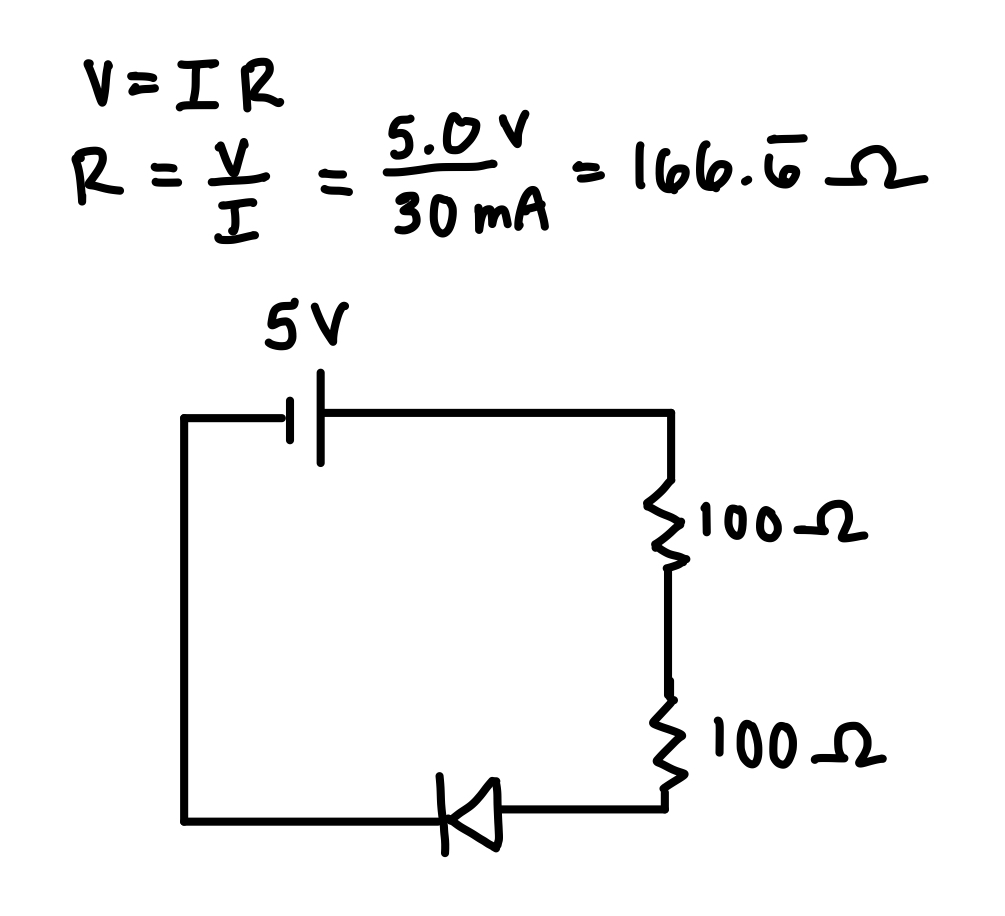 V = I R
R = V/I = 5.0 V / 30 mA = 166.6̅ Ω
5 V
100 Ω
100 Ω